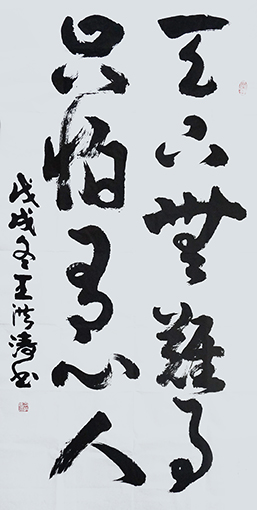 天下無難事
只怕有心人
戊戌冬王洪涛书